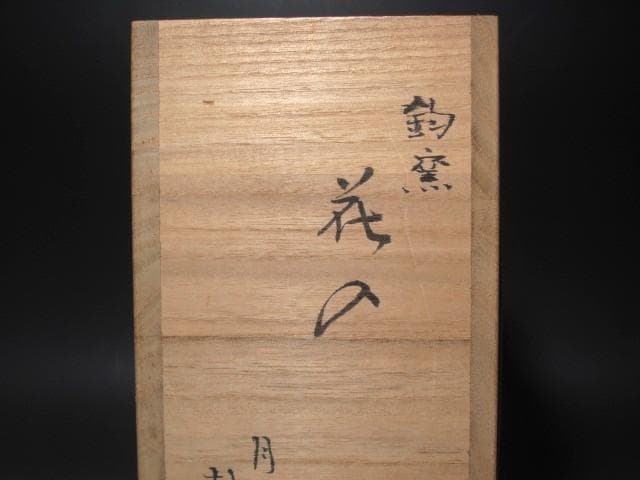 鈞窯
花入
月